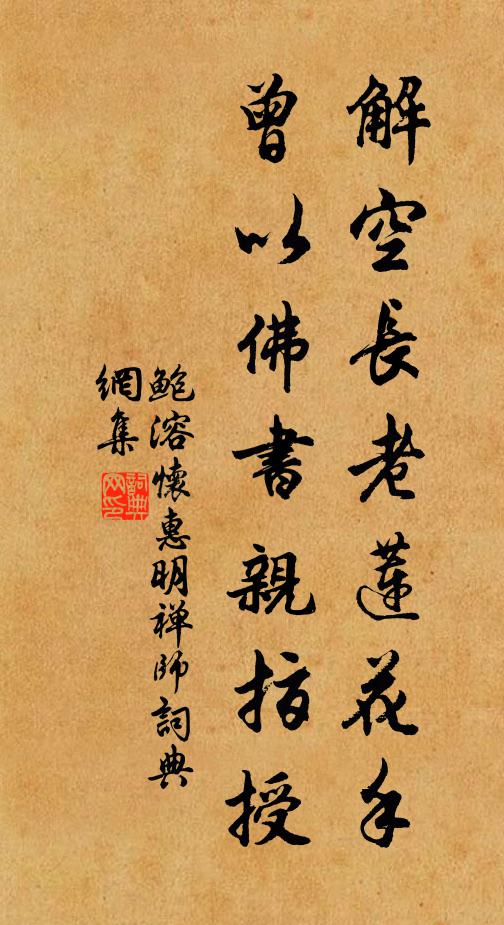 解空長老蓮花手
曾以佛書親指授
鮑溶懷惠明禅師詞典
網集
詞典
网印